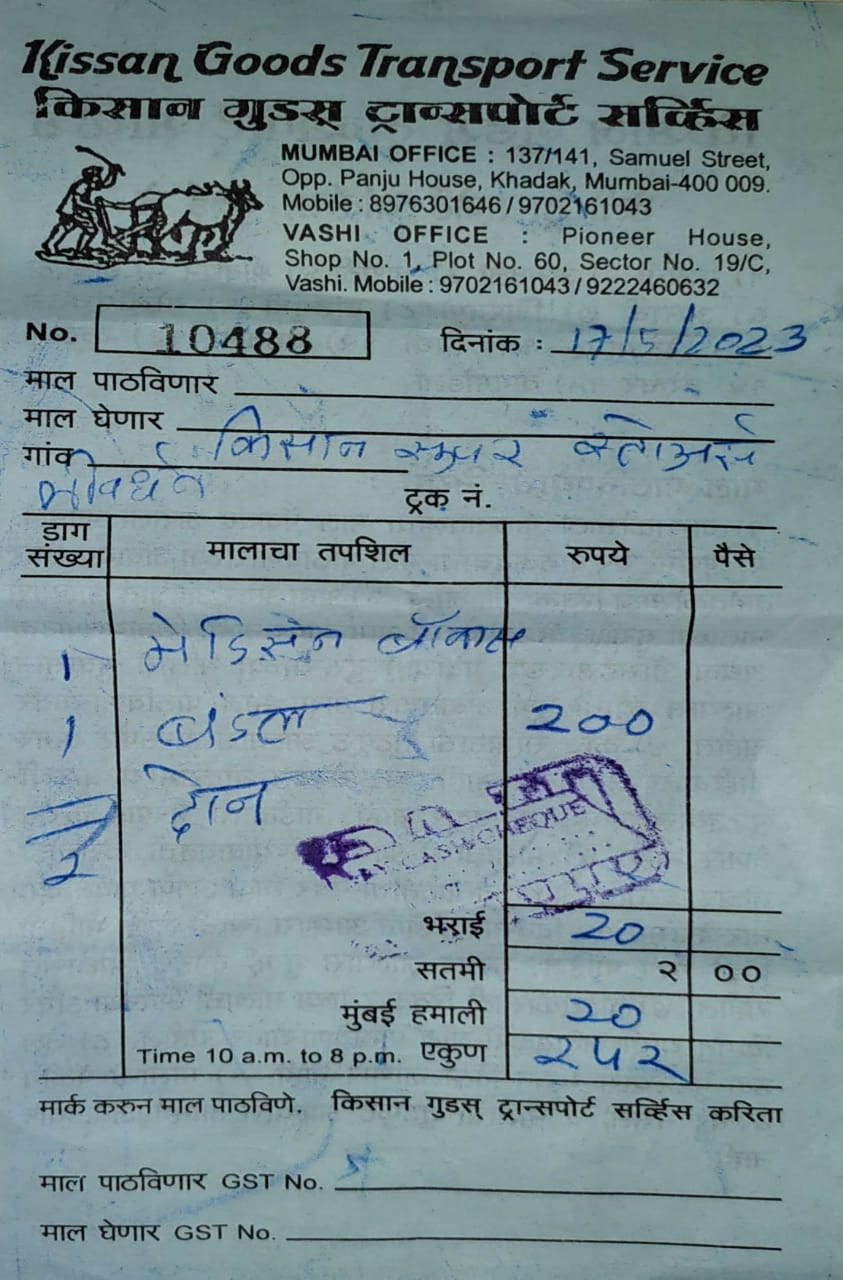 Kissan Goods Transport Service
किसान गुडस् ट्रान्सपोर्ट सर्व्हिस
MUMBAI OFFICE : 137/141, Samuel Street,
Opp. Panju House, Khadak, Mumbai-400 009.
Mobile : 8976301646 / 9702161043
VASHI OFFICE : Pioneer House,
Shop No. 1, Plot No. 60, Sector No. 19/C,
Vashi. Mobile : 9702161043 / 9222460632
No. 10488 दिनांक : 17/5/2023
माल पाठविणार
माल घेणार
गांव किसान सुपर स्टोअर्स
ट्रक नं.
डाग संख्या मालाचा तपशिल रुपये पैसे
1 मेडिसेन बॉक्स
1 बंडल 200
२ दोन
CASH CHEQUE
भराई 20
सतमी २ ००
मुंबई हमाली 20
Time 10 a.m. to 8 p.m. एकुण २५२
मार्क करुन माल पाठविणे. किसान गुडस् ट्रान्सपोर्ट सर्व्हिस करिता
माल पाठविणार GST No.
माल घेणार GST No.